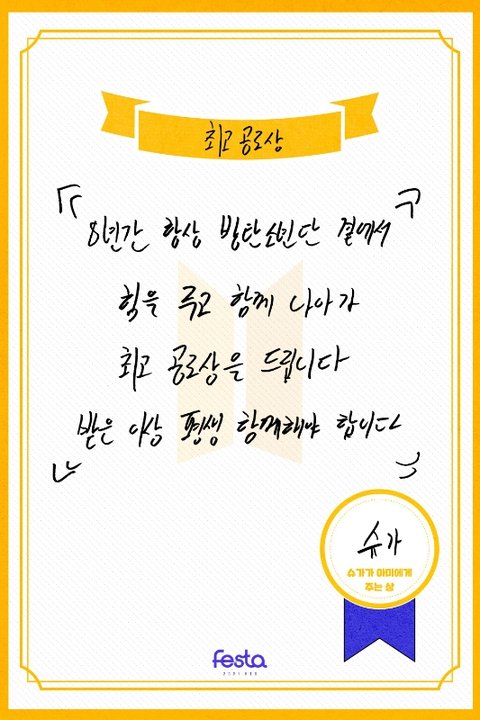 최고 공로상
『8년간 항상 방탄소년단 곁에서
힘을 주고 함께 나아가
최고 공로상을 드립니다
받은 이상 평생 함께해야 합니다』
슈가
슈가가 아미에게
주는 상
festa